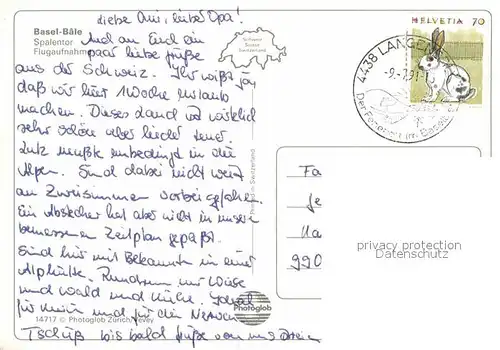 Liebe Omi, lieber Opa!
Basel-Bâle
Spalentor
Flugaufnahme
Auch an Euch ein
paar liebe Grüße
aus der Schweiz. Ihr wißt ja,
daß wir hier 1 Woche Urlaub
machen. Dieses Land ist wirklich
sehr schön aber leider teuer.
Lutz mußte unbedingt in die
Alpen. Sind dabei nicht weit
an Zweisimmen vorbei gefahren.
Ein Abstecher hat aber nicht in unseren
bemessenen Zeitplan gepaßt.
Sind hier mit Bekannten in einer
Alphütte. Rundherum nur Wiese
und Wald und Kühe. Ideal
für mich und für die Nerven
Tschüß bis bald Grüße von uns Dreien
14717 © Photoglob Zürich/Vevey
Photoglob
Printed in Switzerland
Schweiz
Suisse
Switzerland
HELVETIA 70
4438 LANGEN
-9.-7.91-
Der Ferienort im Baselb
Fa
Ja
Ha
990
privacy protection
Datenschutz